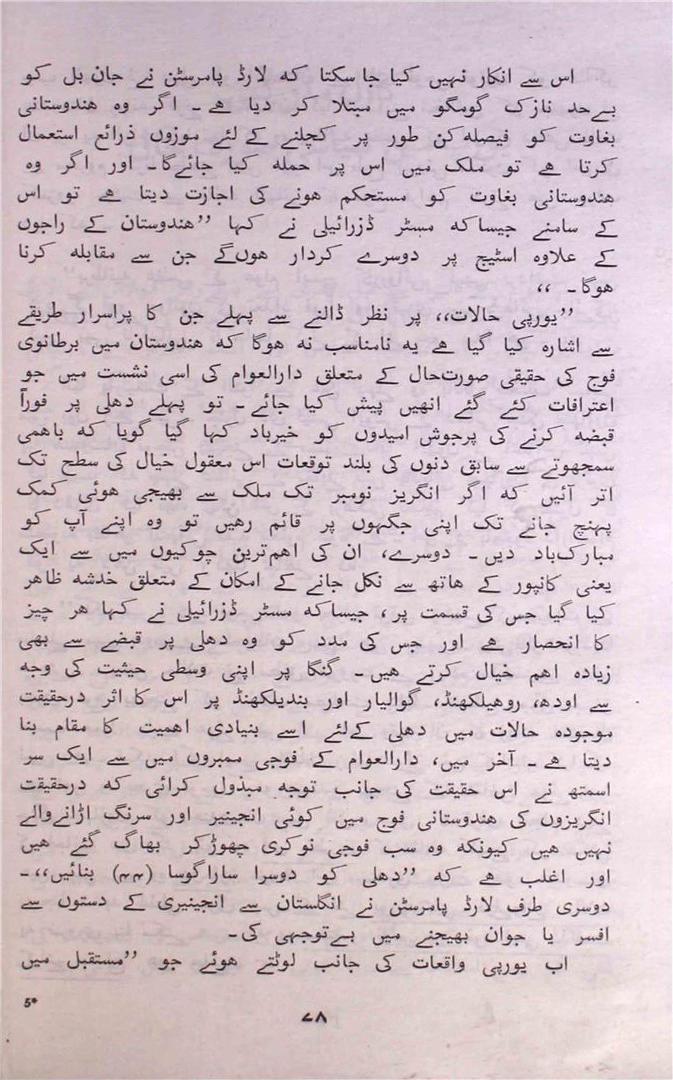 اس سے انکار نہیں کیا جا سکتا که لارڈ پامرسٹن نے جان بل کو
بےحد نازک گومگو میں مبتلا کر دیا ھے ۔ اگر وہ ھندوستانی
بغاوت کو فیصلہ کن طور پر کچلنے کے لئے موزوں ذرائع استعمال
کرتا ھے تو ملک میں اس پر حملہ کیا جائےگا۔ اور اگر وہ
ھندوستانی بغاوت کو مستحکم ھونے کی اجازت دیتا ھے تو اس
کے سامنے جیساکہ مسٹر ڈزرائیلی نے کہا ’’ھندوستان کے راجوں
کے علاوہ اسٹیج پر دوسرے کردار ھوںگے جن سے مقابلہ کرنا
ھوگا۔ ،،
’’یورپی حالات،، پر نظر ڈالنے سے پہلے جن کا پراسرار طریقے
سے اشارہ کیا گیا ھے یه نامناسب نه ھوگا که ھندوستان میں برطانوی
فوج کی حقیقی صورتحال کے متعلق دارالعوام کی اسی نشست میں جو
اعترافات کئے گئے انھیں پیش کیا جائے ۔ تو پہلے دھلی پر فوراً
قبضہ کرنے کی پرجوش امیدوں کو خیرباد کہا گیا گویا که باھمی
سمجھوتے سے سابق دنوں کی بلند توقعات اس معقول خیال کی سطح تک
اتر آئیں که اگر انگریز نومبر تک ملک سے بھیجی ھوئی کمک
پہنچ جانے تک اپنی جگہوں پر قائم رھیں تو وہ اپنے آپ کو
مبارکباد دیں ۔ دوسرے، ان کی اھمترین چوکیوں میں سے ایک
یعنی کانپور کے ھاتھ سے نکل جانے کے امکان کے متعلق خدشہ ظاھر
کیا گیا جس کی قسمت پر، جیساکہ مسٹر ڈزرائیلی نے کہا ھر چیز
کا انحصار ھے اور جس کی مدد کو وہ دھلی پر قبضے سے بھی
زیادہ اھم خیال کرتے ھیں۔ گنگا پر اپنی وسطی حیثیت کی وجہ
سے اودھ، روھیلکھنڈ، گوالیار اور بندیلکھنڈ پر اس کا اثر درحقیقت
موجودہ حالات میں دھلی کےلئے اسے بنیادی اھمیت کا مقام بنا
دیتا ھے ۔ آخر میں، دارالعوام کے فوجی ممبروں میں سے ایک سر
اسمتھ نے اس حقیقت کی جانب توجه مبذول کرائی که درحقیقت
انگریزوں کی ھندوستانی فوج میں کوئی انجینیر اور سرنگ اڑانےوالے
نہیں ھیں کیونکہ وہ سب فوجی نوکری چھوڑکر بھاگ گئے ھیں
اور اغلب ھے که ’’دھلی کو دوسرا ساراگوسا (۴۴) بنائیں،،۔
دوسری طرف لارڈ پامرسٹن نے انگلستان سے انجینیری کے دستوں سے
افسر یا جوان بھیجنے میں بےتوجہی کی۔
اب یورپی واقعات کی جانب لوٹتے ھوئے جو ’’مستقبل میں
5*
۷۸